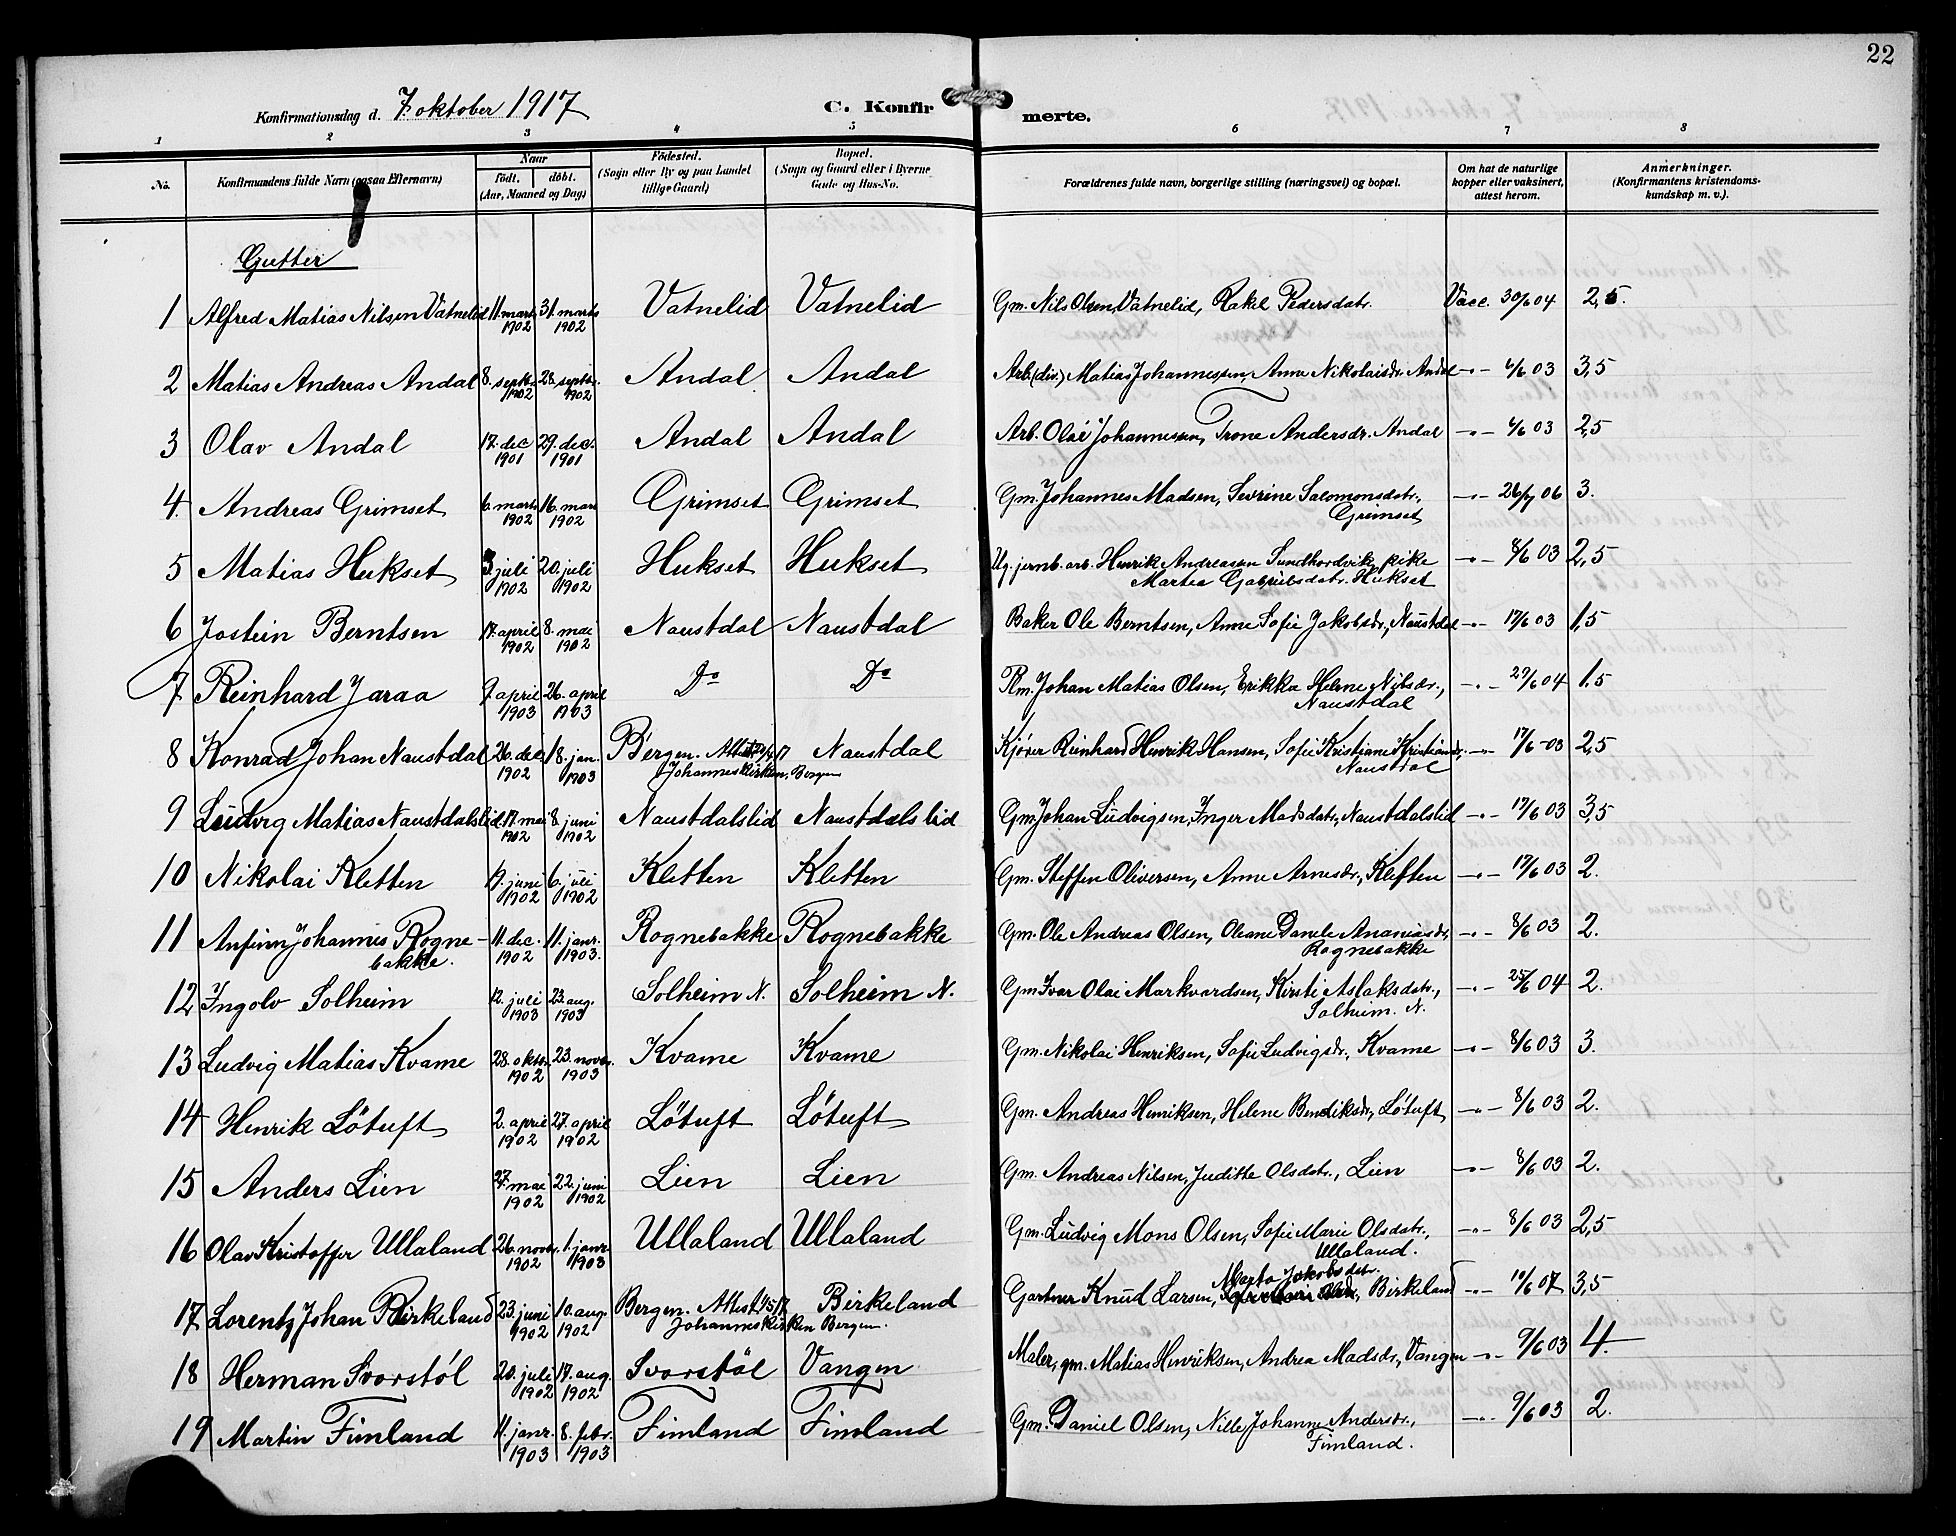 22
Konfirmationsdag d. 7. oktober 1917 C. Konfirmerte.
1 2 3 4 5 6 7 8
No. Konfirmandens fulde Navn (ogsaa Efternavn) Naar Født. døbt. (Aar, Maaned og Dag) Fødested. (Sogn eller By og paa Landet tillige Gaard) Bopæl. (Sogn og Gaard eller i Byerne Gade og Hus-No. Forældrenes fulde navn, borgerlige stilling (næringsvei) og bopæl. Om hat de naturlige kopper eller vaksinert, attest herom. Anmerkninger. (Konfirmantens kristendoms-kundskap m. v.).
Gutter
1 Alfred Matias Nilsen Vatnelid 11. marts 1902 31. marts 1902 Vatnelid Vatnelid Gm. Nils Olsen Vatnelid, Rakel Pedersdatr. Vacc. 30/6 04 2,5.
2 Matias Andreas Andal 8. septbr. 1902 28. septbr. 1902 Andal Andal Arb. (div.) Matias Johannessen, Anne Nikolaisdr. Andal -"- 4/6 03 3,5
3 Olav Andal 17. dec 1901 29. dec. 1901 Andal Andal Arb. Olai Johannessen, Trone Andersdr. Andal -"- 4/6 03 2,5
4. Andreas Grimset 6. marts 1902 16. mars 1902 Grimset Grimset Gm. Johannes Madsen, Sevrine Salomonsdatr.,
Grimset -"- 26/7 06 3.
5 Matias Hukset 3. juli 1902 20. juli 1902 Hukset Hukset Ug. jernb. arb. Henrik Andreassen Sundhordvik, pike
Martea Gabrielsdatr. Hukset -"- 8/6 03 2,5
6 Jostein Berntsen 17. april 1902 8. mai 1902 Naustdal Naustdal Baker Ole Berntsen, Anne Sofie Jakobsdr., Naustdal -"- 17/6 03 1,5
7 Reinhard Jaraa 9. april 1903 26. april 1903 Do Do Rm. Johan Matias Olsen, Erikka Helene Nilsdr.,
Naustdal -"- 27/6 04 1,5
8 Konrad Johan Naustdal 26. dec. 1902 18. jan. 1903 Bergen. Attest
Johanneskirken, Bergen Naustdal Kjører Reinhard Henrik Hansen, Sofie Kristiane Kristiansdr.
Naustdal -"- 17/6-03 2,5
9 Ludvig Matias Naustdalslid 17. mai 1902 8. juni 1902 Naustdalslid Naustdalslid Gm. Johan Ludvigsen, Inger Madsdatr., Naustdalslid -"- 17/6 03 3,5
10 Nikolai Kletten 17. juni 1902 6. juli 1902 Kletten Kletten Gm. Steffen Oliversen, Anne Arnesdr., Kletten -"- 17/6 03 2.
11 Anfinn Johannes Rogne-
bakke. 11. dec. 1902 11. janr. 1903. Rognebakke Rognebakke Gm. Ole Andreas Olsen, Oleane Danele Ananiasdr.
Rognebakke -"- 8/6 03 2.
12 Ingolv Solheim 12. juli 1903 23. aug. 1903 Solheim N. Solheim N. Gm. Ivar Olai Markvardsen, Kirsti Aslaksdatr.,
Solheim. N. -"- 25/6 04 2.
13 Ludvig Matias Kvame 28. oktbr. 1902 23. novbr. 1903 Kvame Kvame Gm. Nikolai Henriksen, Sofie Ludvigsdr., Kvame -"- 8/6 03 3.
14 Henrik Løtuft 2. april 1902 27. april 1902 Løtuft Løtuft Gm. Andreas Henriksen, Helene Bendiksdr., Løtuft -"- 8/6 03 2.
15 Anders Lien 27. mai 1902 22. juni 1902 Lien Lien Gm. Andreas Nilsen, Juditte Olsdatr., Lien -"- 8/6 03 2.
16 Olav Kristoffer Ullaland 26. novbr. 1902 1. janr. 1903 Ullaland Ullaland Gm. Ludvig Mons Olsen, Sofie Marie Olsdatr.,
Ullaland. -"- 8/6 03 2,5
17 Lorentz Johan Birkeland 23. juni 1902 10. aug. 1902 Bergen. Attest 1/5 17
Johanneskirken Bergen. Birkeland Gartner Knud Larsen, Marta Jakobsdatr. Birkeland -"- 19/6 07 3,5
18 Herman Svorstøl 20. juli 1902 17. aug. 1902 Svorstøl Vangen Maler, gm. Matias Henriksen, Andrea Madsdr., Vangen -"- 9/6 03 4.
19 Martin Fimland 11. janr. 1903 8. febr. 1903 Fimland Fimland Gm. Daniel Olsen, Nille Johanne Andersdr.,
Fimland. -"- 9/6 03 2.